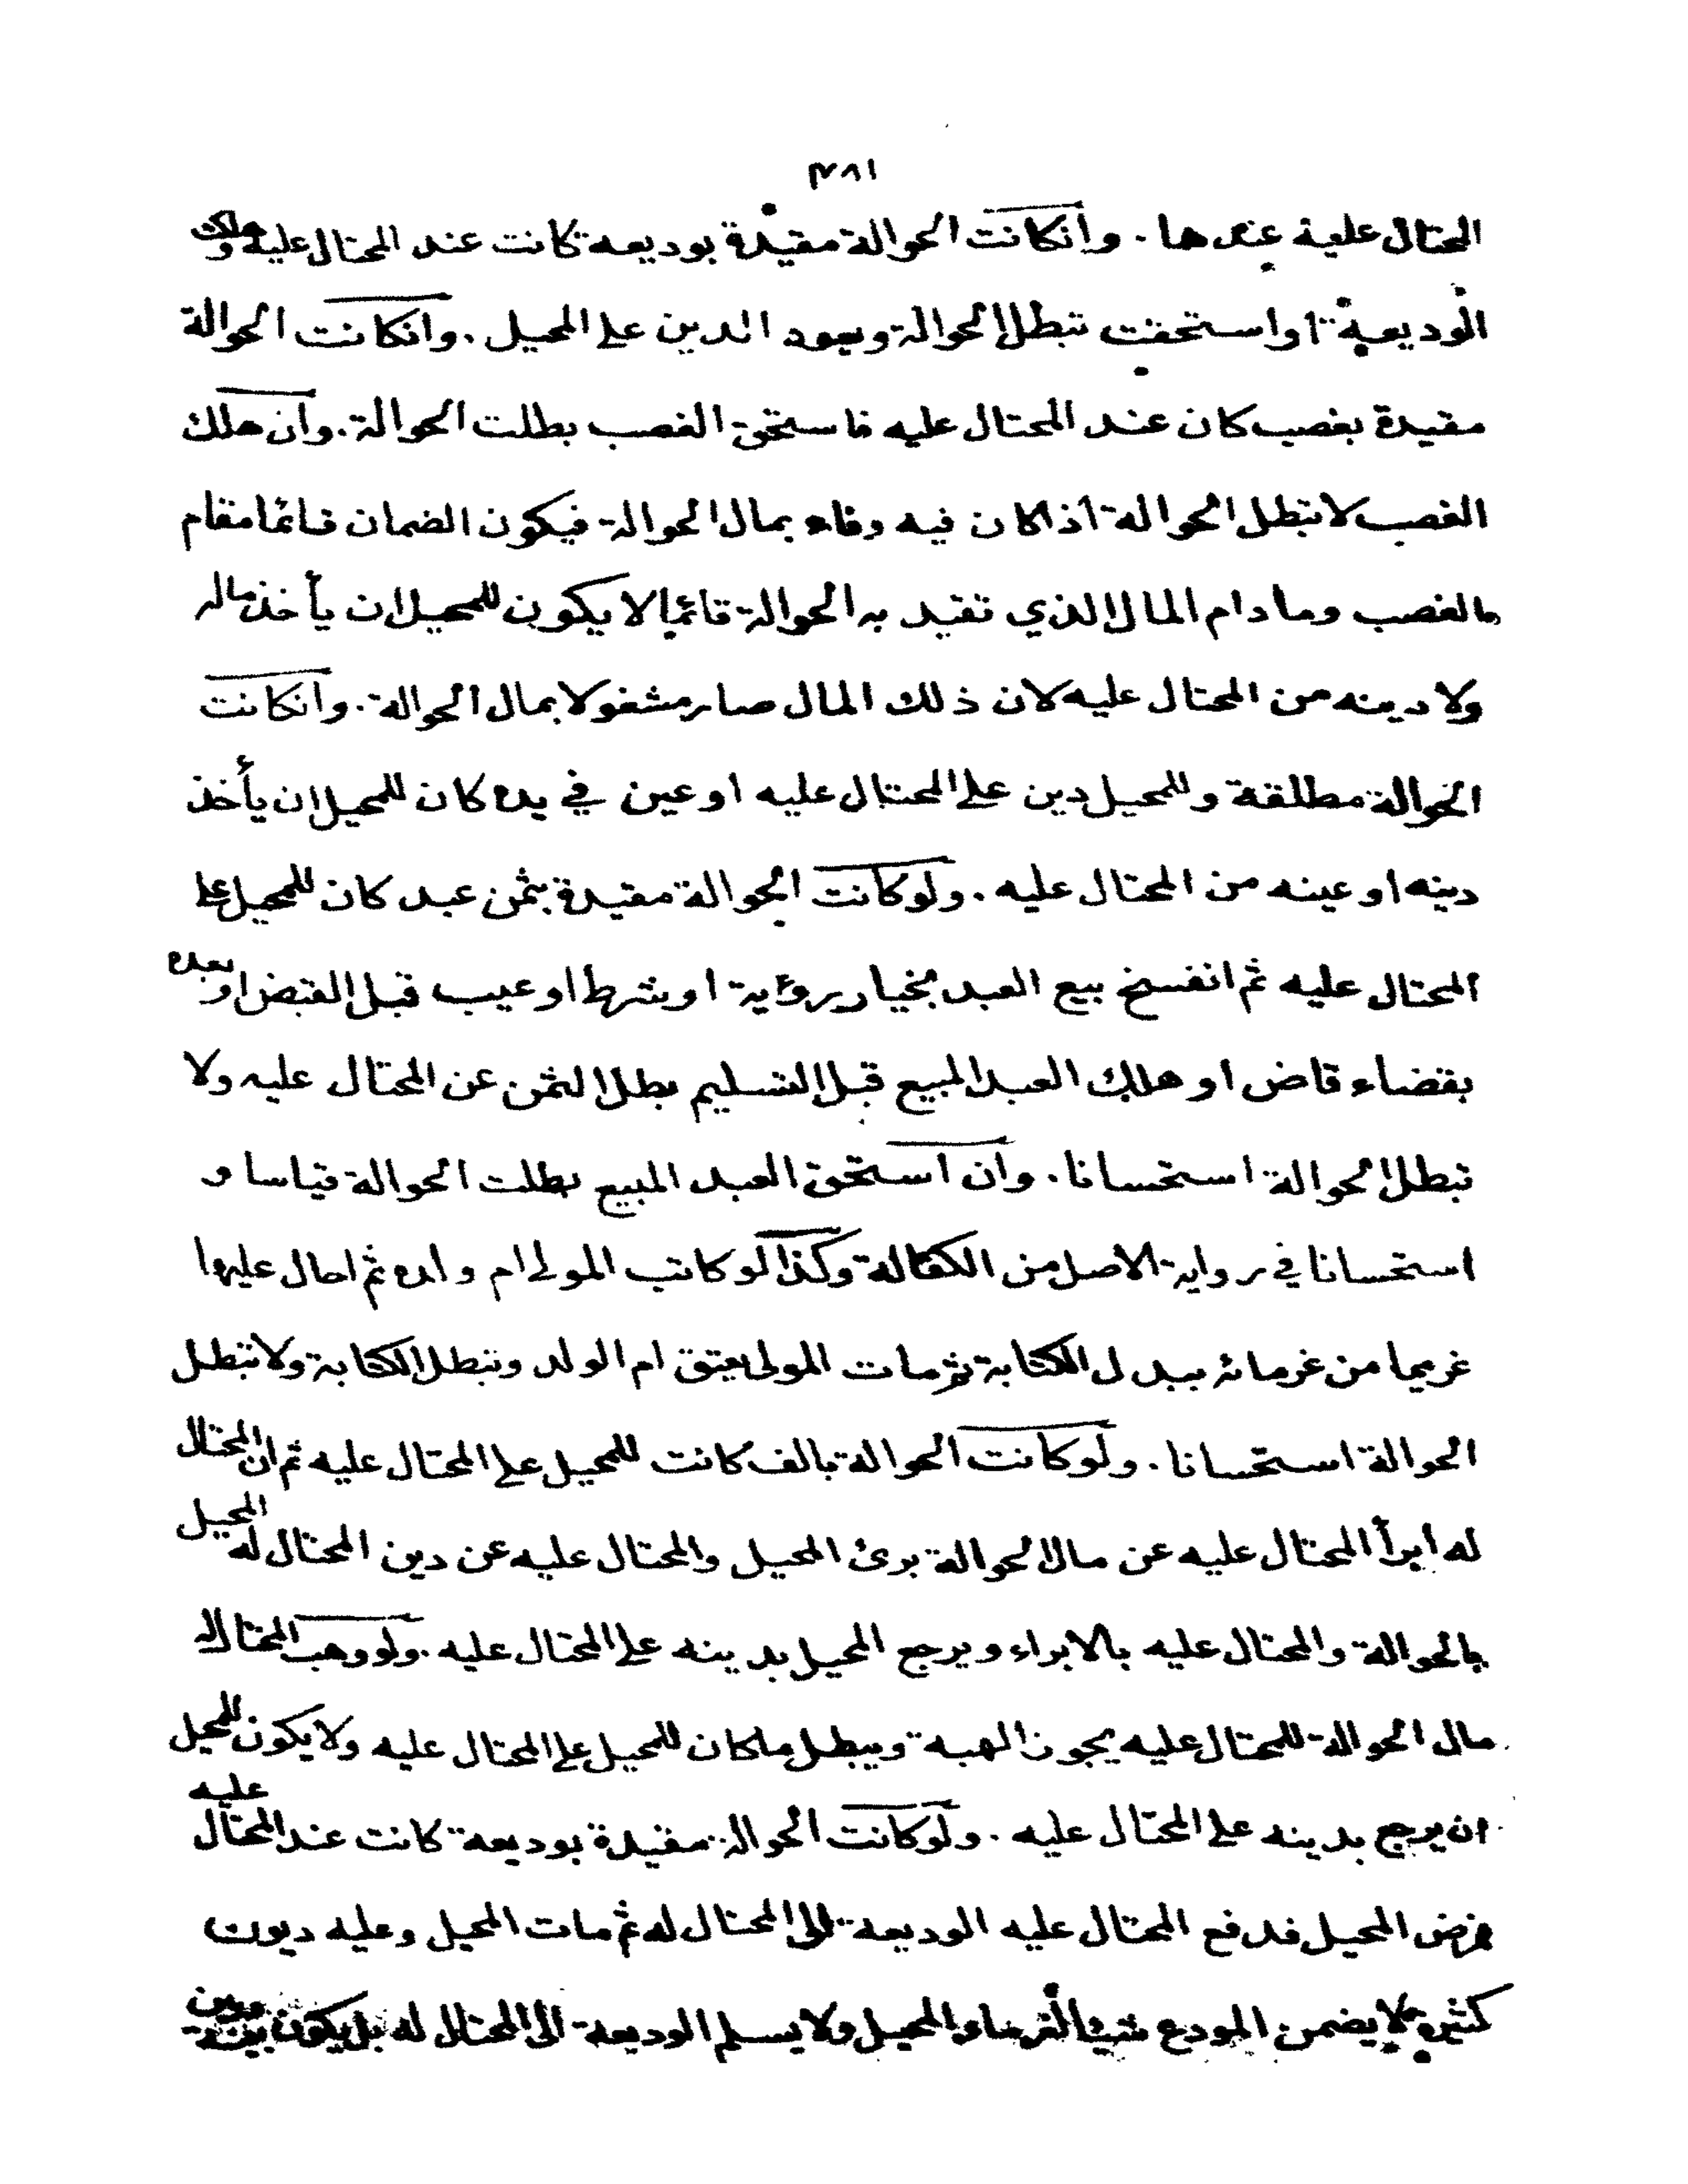 ٣٨١
المحتال عليه عندها . وانكانت الحوالة مقيدة بوديعة كانت عند المحتال عليه وهلك
الوديعة او استحقت تبطل الحوالة ويعود الدين على المحيل . وانكانت الحوالة
مقيدة بغصب كان عند المحتال عليه فاستحق الغصب بطلت الحوالة . وان هلك
الغصب لا تبطل الحوالة اذا كان فيه وفاء بمال الحوالة فيكون الضمان قائما مقام
الغصب وما دام المال الذي تقيد به الحوالة قائما لا يكون للمحيل ان يأخذ ماله
ولا دينه من المحتال عليه لان ذلك المال صار مشغولا بمال الحوالة . وانكانت
الحوالة مطلقة وللمحيل دين على المحتال عليه او عين في يده كان للمحيل ان يأخذ
دينه او عينه من المحتال عليه . ولو كانت الحوالة مقيدة بثمن عبد كان للمحيل على
المحتال عليه ثم انفسخ بيع العبد بخيار رؤية او شرط او عيب قبل القبض او بعده
بقضاء قاض او هلك العبد المبيع قبل التسليم بطل الثمن عن المحتال عليه ولا
تبطل الحوالة استحسانا . وان استحق العبد المبيع بطلت الحوالة قياسا و
استحسانا في رواية الاصل من الكفالة وكذا لو كاتب المولى ام ولده ثم احال عليها
غريما من غرمائه ببدل الكتابة ثم مات المولى يعتق ام الولد وتبطل الكتابة ولا تبطل
الحوالة استحسانا . ولو كانت الحوالة بالف كانت للمحيل على المحتال عليه ثم ان المحتال
له ابرأ المحتال عليه عن مال الحوالة برئ المحيل والمحتال عليه عن دين المحتال له المحيل
بالحوالة والمحتال عليه بالابراء ويرجع المحيل بدينه على المحتال عليه . ولو وهب المحتال له
مال الحوالة للمحتال عليه يجوز الهبة ويبطل ما كان للمحيل على المحتال عليه ولا يكون للمحيل
ان يرجع بدينه على المحتال عليه . ولو كانت الحوالة مقيدة بوديعة كانت عند المحتال عليه
فمرض المحيل فدفع المحتال عليه الوديعة الى المحتال له ثم مات المحيل وعليه ديون
كثيرة لا يضمن المودع شيئا لغرماء المحيل ولا يسلم الوديعة الى المحتال له بل يكون بينه وبين